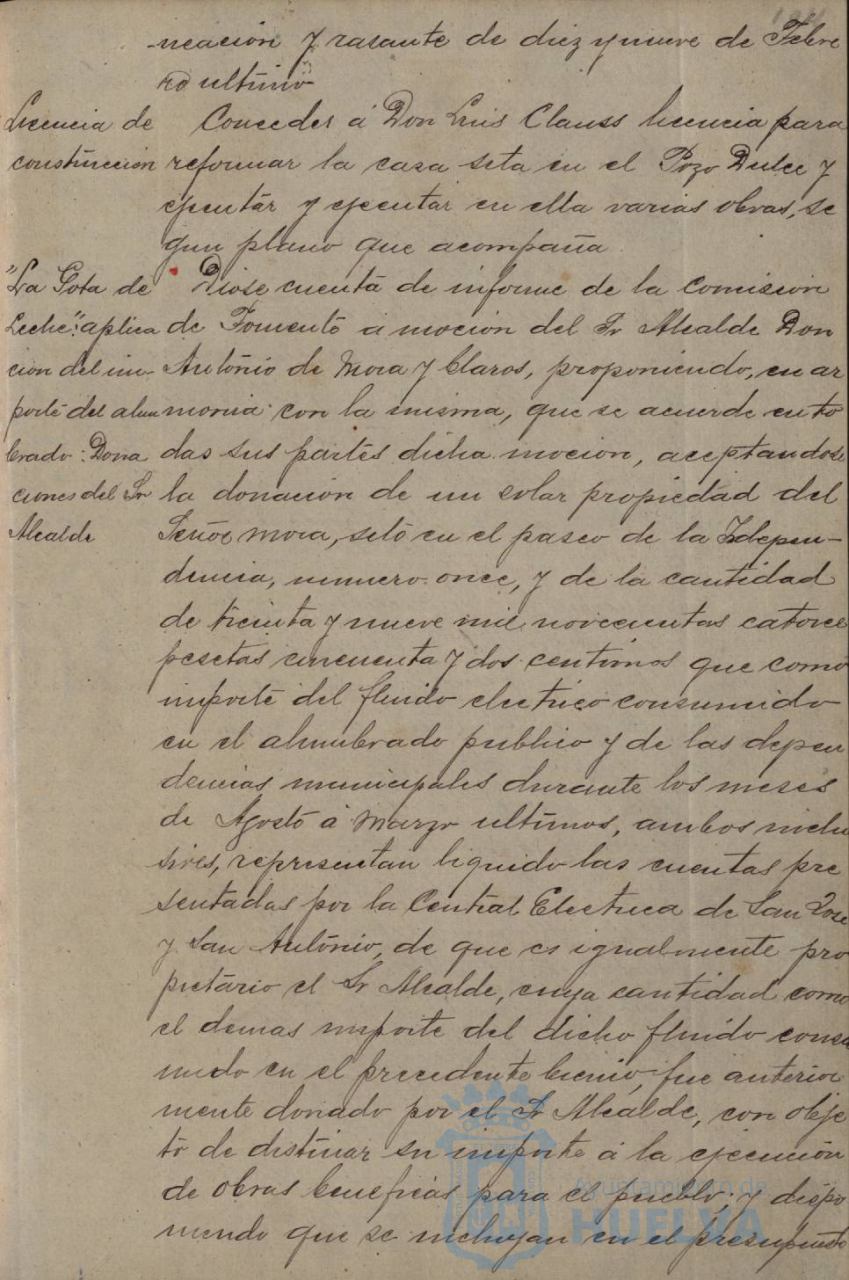 neación y rasante de diez y nueve de Febre
ro ultimo
Licencia de
construccion
Conceder á Don Luis Clauss licencia para
reformar la casa sita en el Pozo Dulce y
ejecutar y ejecutar en ella varias obras, se
gun plano que acompaña
"La Gota de
Leche": aplica
cion del im-
porte del alum
brado: Dona
ciones del Sr
Alcalde
Diose cuenta de informe de la comision
de Fomento a mocion del Sr Alcalde Don
Antonio de Mora y Claros, proponiendo, en ar
monia con la misma, que se acuerde en to
das sus partes dicha mocion, aceptandose
la donación de un solar propiedad del
Señor Mora, sito en el paseo de la Indepen-
dencia, numero once, y de la cantidad
de treinta y nueve mil novecientas catorce
pesetas cincuenta y dos centimos que como
importe del fluido electrico consumido
en el alumbrado publico y de las depen
dencias municipales durante los meses
de Agosto á Marzo ultimos, ambos inclu
sives, representan liquido las cuentas pre
sentadas por la Central Electrica de San José
y San Antonio, de que es igualmente pro
pietario el Sr Alcalde, cuya cantidad como
el demas importe del dicho fluido consu
mido en el precedente bienio, fue anterior
mente donado por el Sr Alcalde, con obje
to de destinar su importe á la ejecucion
de obras beneficas para el pueblo; y dispo
niendo que se incluyan en el presupuesto
Ayuntamiento de
HUELVA